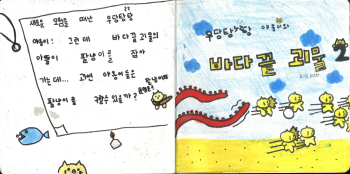 새로운 모험을 떠난 우당탕탕
야옹이! 그런데 바다꿀 괴물의
아들이 팔냥이를 잡아
가는데... 과연 야옹이들은
팔냥이를 구할 수 있을까?
우당탕탕 야옹이와
바다꿀 괴물 2